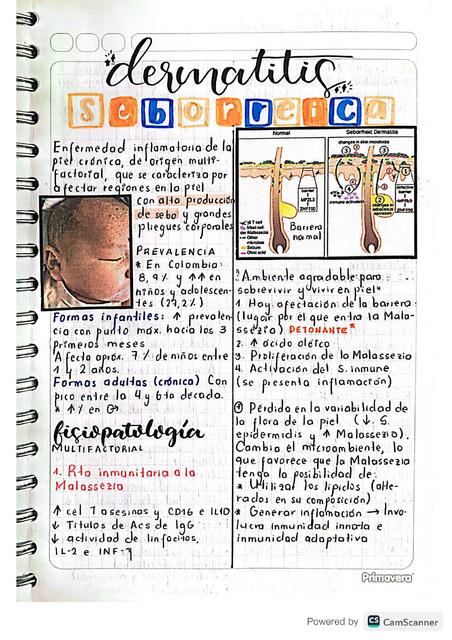 dermatitis
Seborreica
Enfermedad inflamatoria de la
piel crónica, de origen multi-
factorial, que se caracteriza por
afectar regiones en la piel
con alta producción
de sebo y grandes
pliegues corporales
PREVALENCIA
* En Colombia:
8,9% y ↑↑ en
niños y adolescen-
tes (27,2%)
Formas infantiles: ↑ prevalen-
cia con punto máx. hacia los 3
primeros meses
Afecta aprox. 7% de niños entre
1 y 2 años.
Formas adultas (crónica) Con
pico entre la 4 y 6ta decada.
* ↑% en ♂
fisiopatología
MULTIFACTORIAL
1. Rta inmunitaria a la
Malassezia
↑ cel T asesinas y CD16 e IL10
↓ Titulos de Acs de IgG
↓ actividad de linfocitos,
IL-2 e INF-γ
Normal
Seborrheic Dermatitis
changes in skin microbiota
immune activation
barrier
MPZL3
ZNF750
defective barrier
MPZL3
ZNF750
changes in sebaceous secretion
T Cell
Mast cell
Malassezia
Other microbes
Sebum
Oleic acid
Barrera
normal
"Ambiente agradable para
sobrevivir y vivir en piel"
1 Hay afectación de la barrera
(lugar por el que entra la Mala-
ssezia) DETONANTE*
2. ↑ ácido oléico
3. Proliferación de la Malassezia
4. Activación del S. inmune
(se presenta inflamación)
Pérdida en la variabilidad de
la flora de la piel (↓ S.
epidermidis y ↑ Malassezia).
Cambia el microambiente, lo
que favorece que la Malassezia
tenga la posibilidad de:
* Utilizar los lípidos (alte-
rados en su composición)
* Generar inflamación → Invo-
lucra inmunidad innata e
inmunidad adaptativa
Primavera
Powered by CS CamScanner